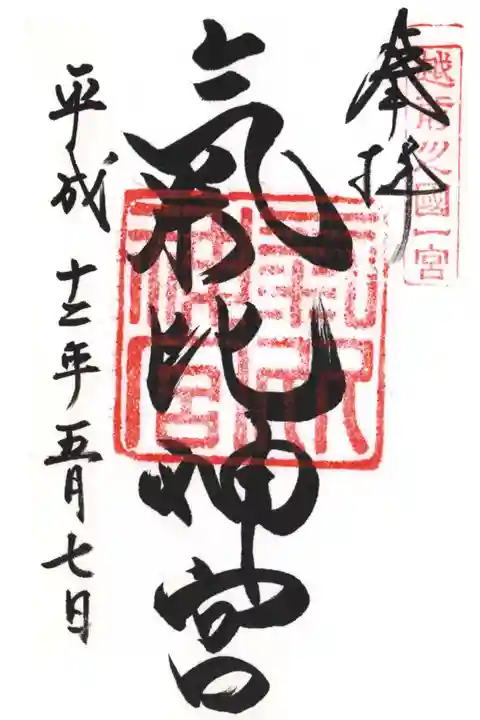 越前之國一宮
奉拝
氣比神宮
氣比神宮
平成十二年五月七日